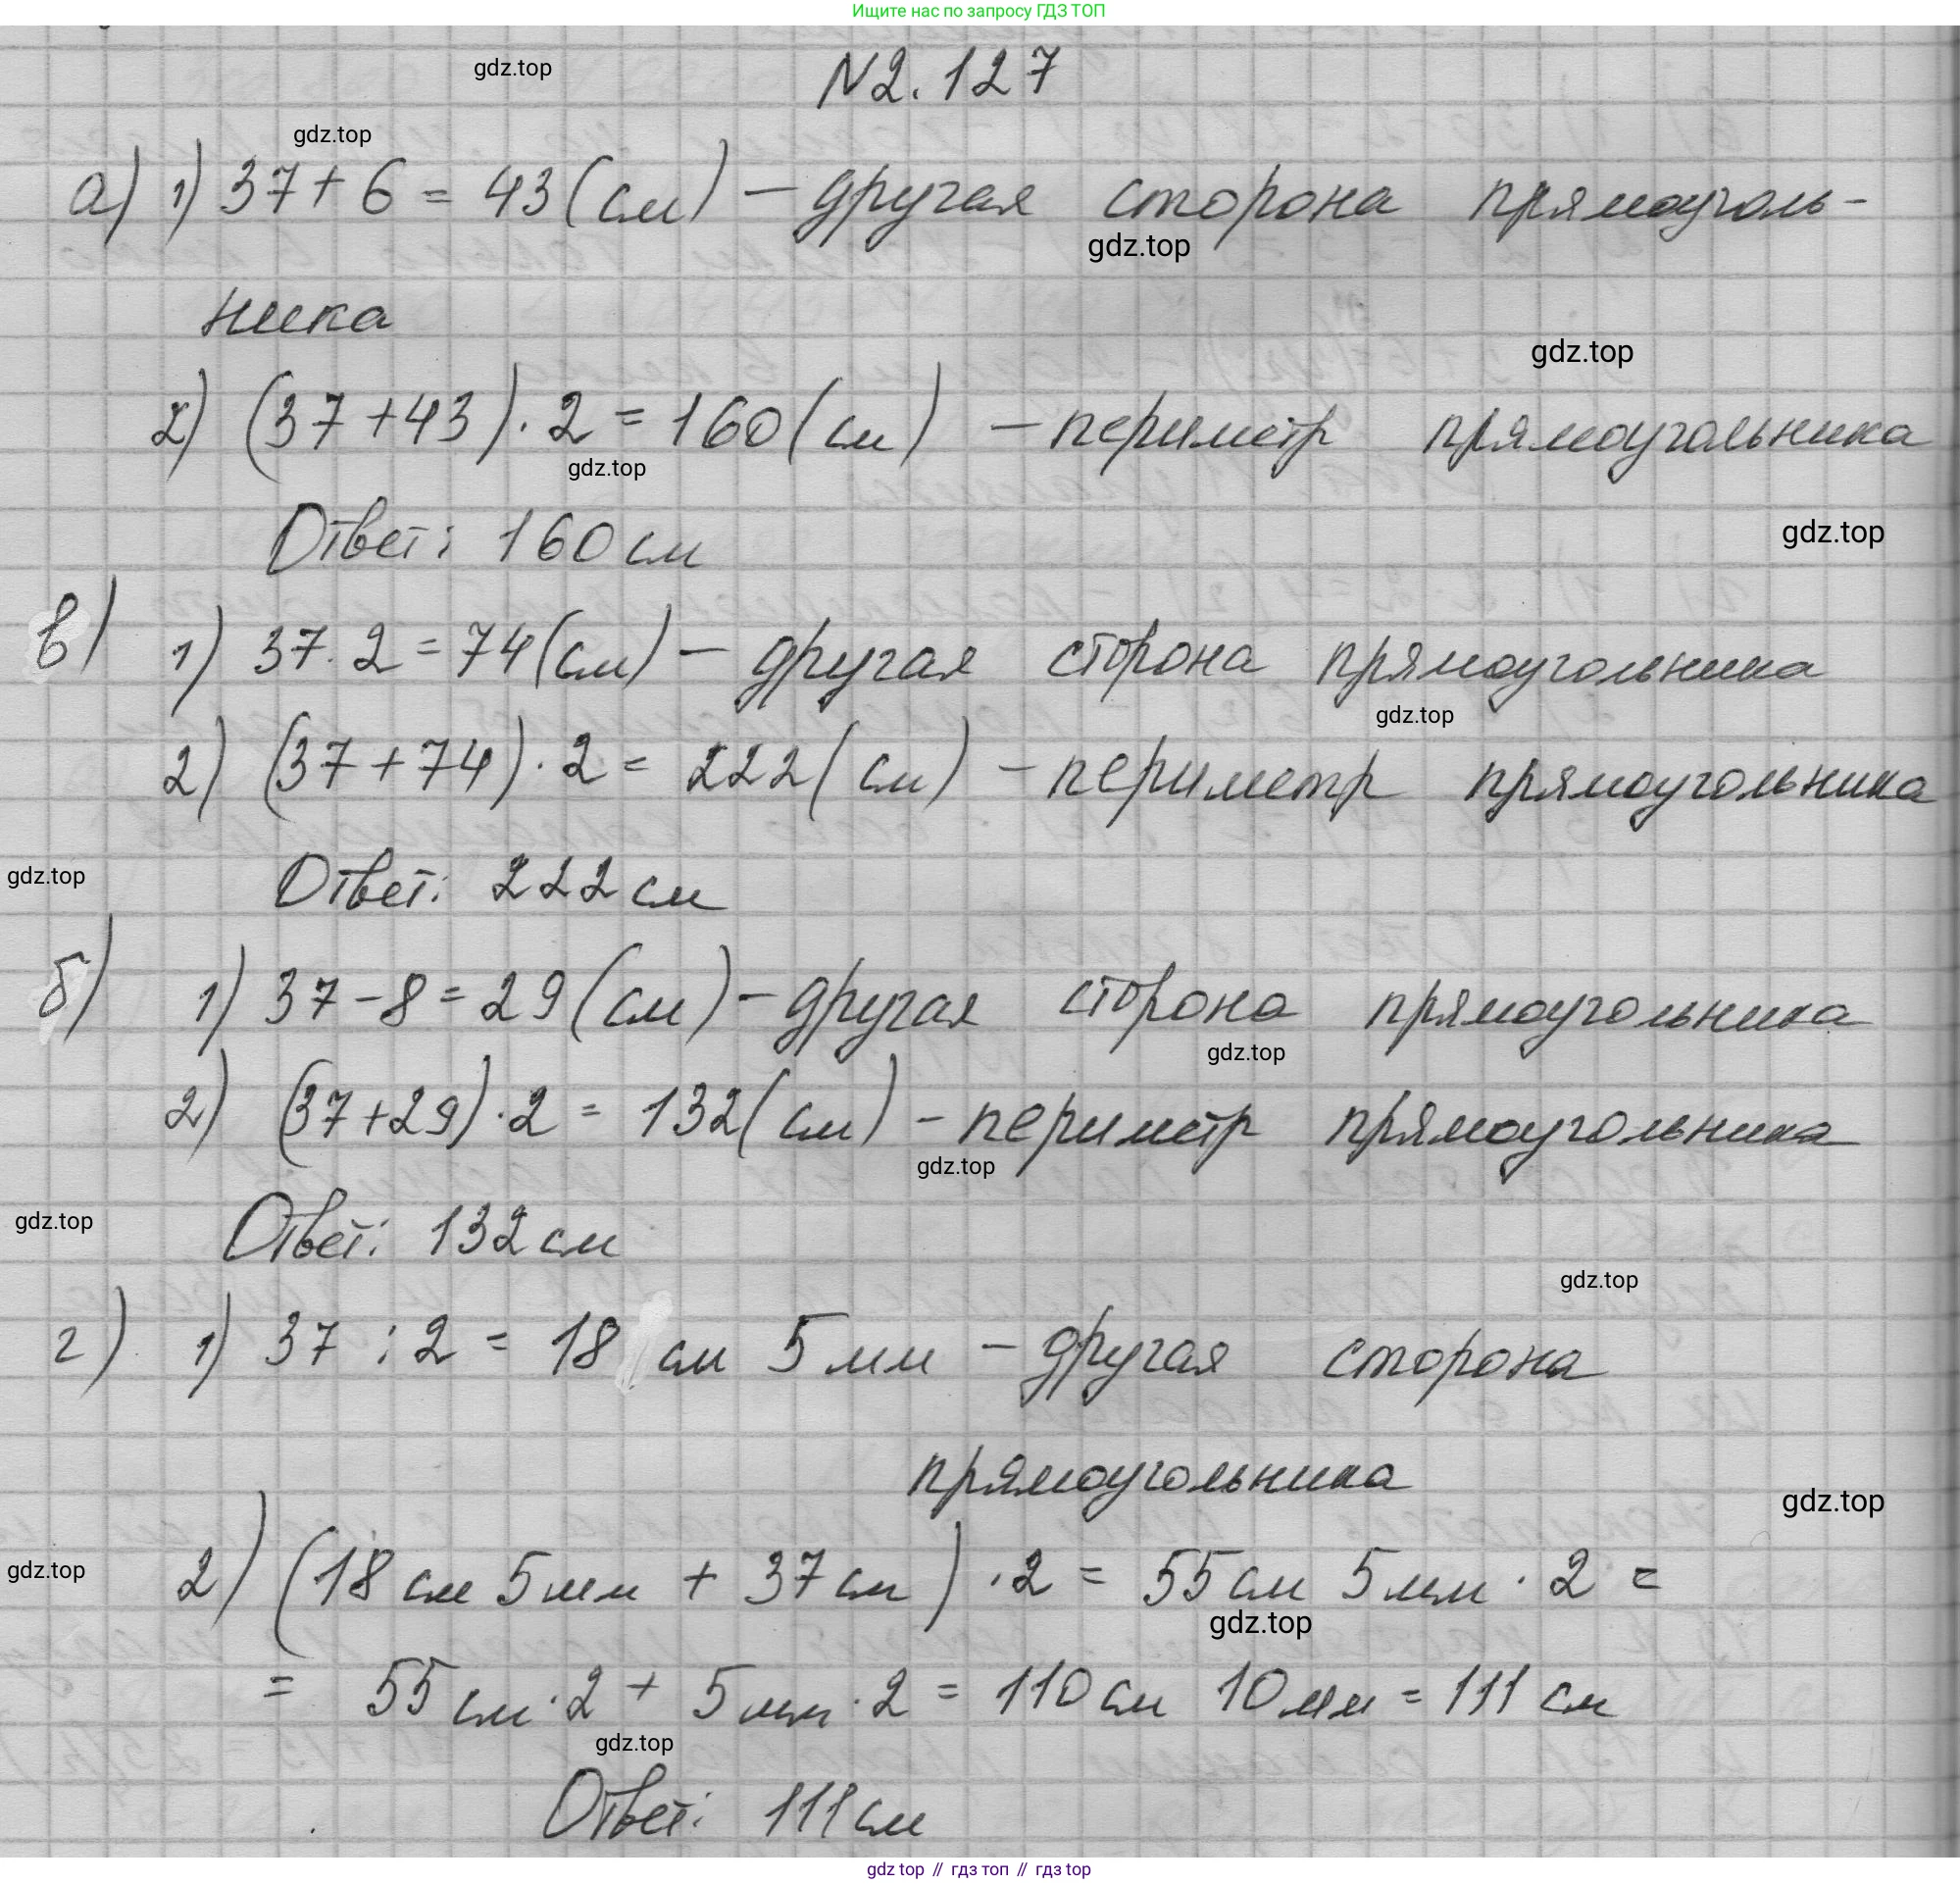 Ищите нас по запросу ГДЗ ТОП
gdz.top
N2.127
gdz.top
а) 1) 37+6 = 43(см) – другая сторона прямоуголь-
gdz.top
ника
gdz.top
2) (37+43)·2=160(см) – периметр прямоугольника
gdz.top
Ответ: 160см
gdz.top
в) 1) 37·2=74(см) – другая сторона прямоугольника
gdz.top
2) (37+74)·2= 222(см) – периметр прямоугольника
gdz.top
Ответ: 222см
б) 1) 37-8=29(см) – другая сторона прямоугольника
gdz.top
2) (37+29)·2 = 132(см) – периметр прямоугольника
gdz.top
gdz.top
Ответ: 132см
gdz.top
г) 1) 37 : 2 = 18 см 5 мм – другая сторона
прямоугольника
gdz.top
gdz.top
2) (18 см 5мм + 37см) ·2 = 55см 5мм · 2 =
gdz.top
= 55см·2 + 5мм·2 = 110см 10мм = 111 см
gdz.top
Ответ: 111см
gdz top // гдз топ // гдз top